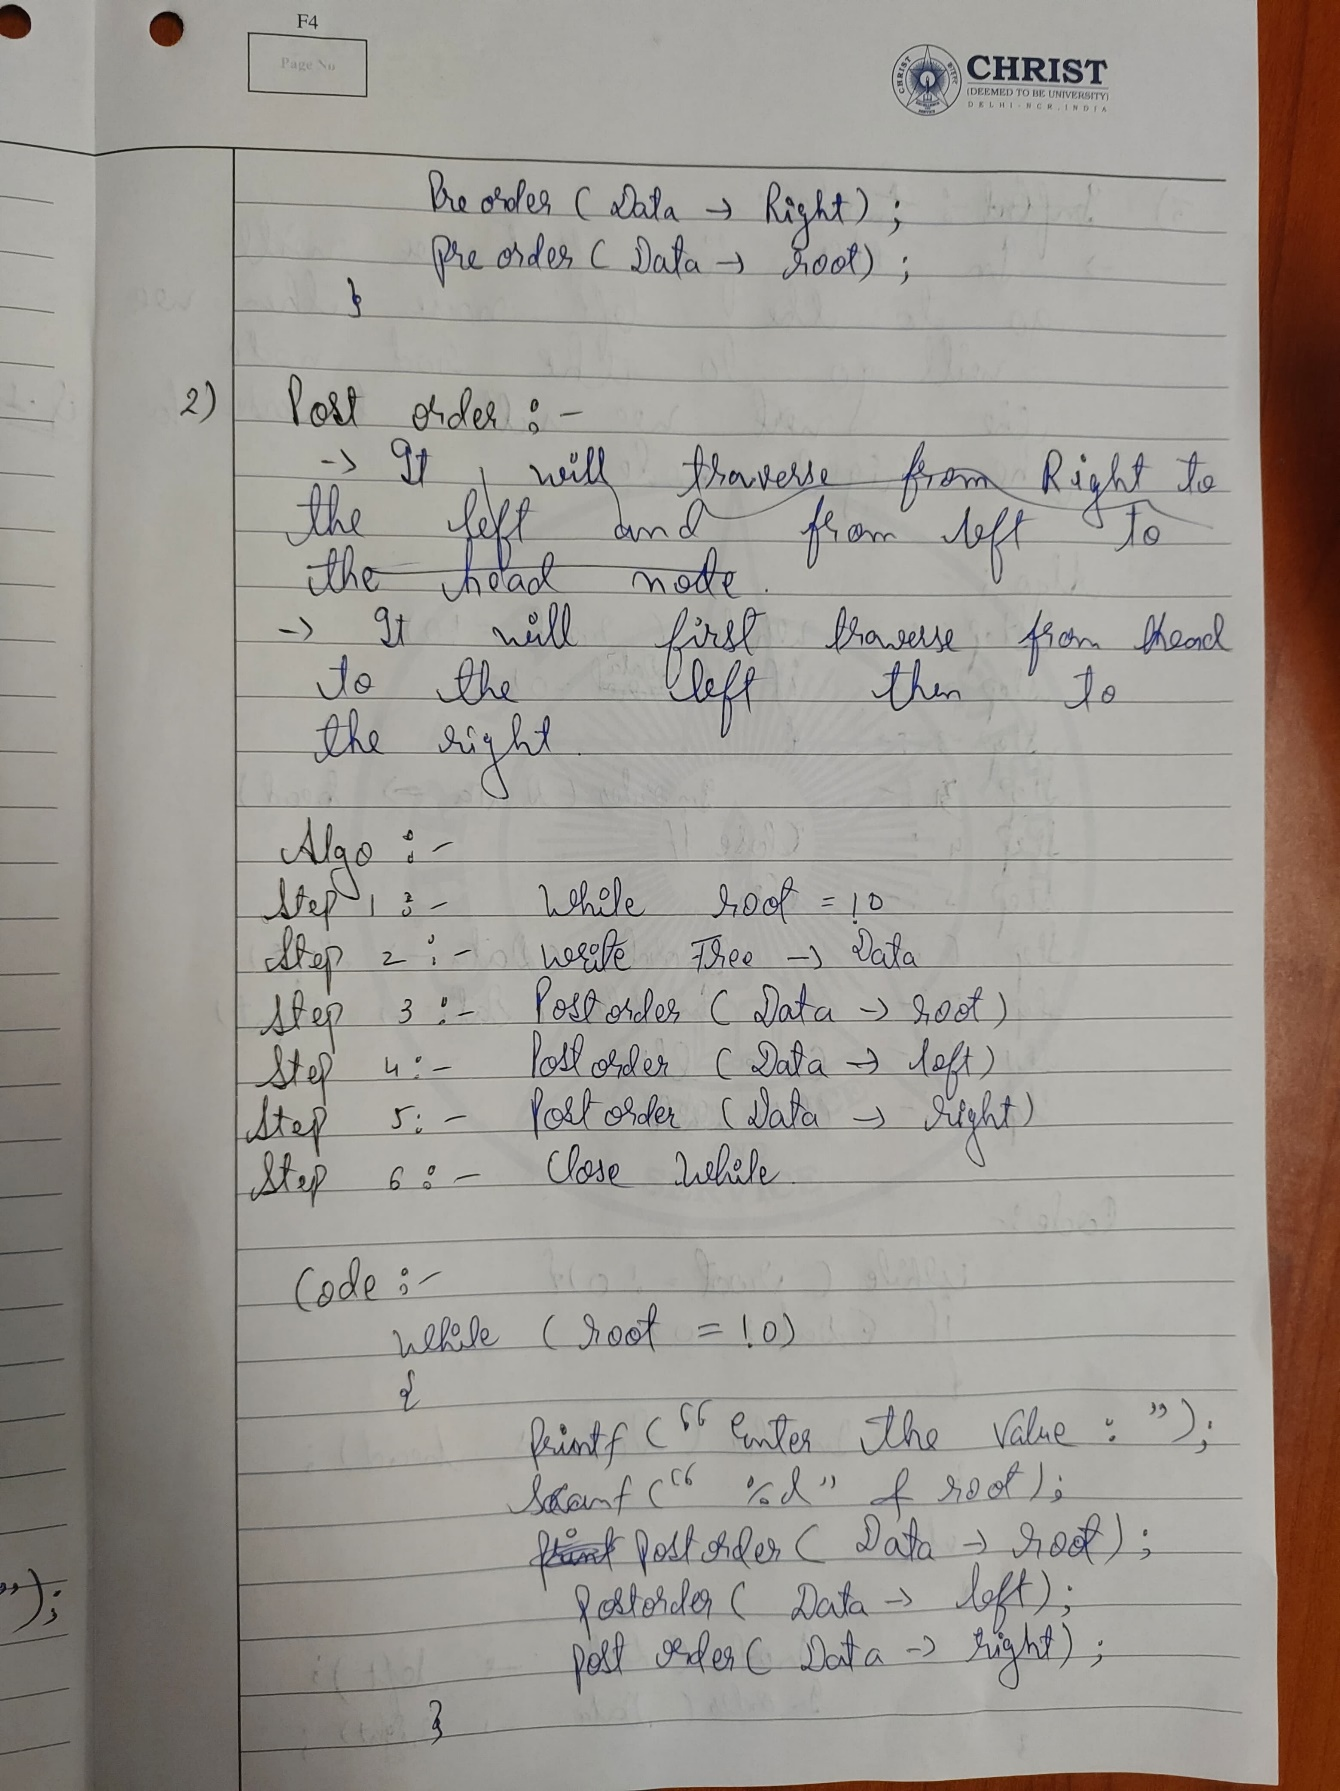 F4
Page No
CHRIST
(DEEMED TO BE UNIVERSITY)
DELHI-NCR, INDIA
Pre order ( Data → Right) ;
Pre order ( Data → root) ;
}
2) Post order :-
→ It will traverse from Right to
the left and from left to
the head node.
→ It will first traverse from head
to the left then to
the right.
Algo :-
Step 1 :- While root = !0
Step 2 :- write Tree → Data
Step 3 :- Post order ( Data → root)
Step 4 :- Post order ( Data → left)
Step 5 :- Post order ( Data → right)
Step 6 :- Close While.
Code :-
while ( root = !0)
{
printf (“ Enter the value : ”);
Scanf (“ %d” & root);
Post order ( Data → root) ;
Postorder ( Data → left);
Post order ( Data → right) ;
}
”);